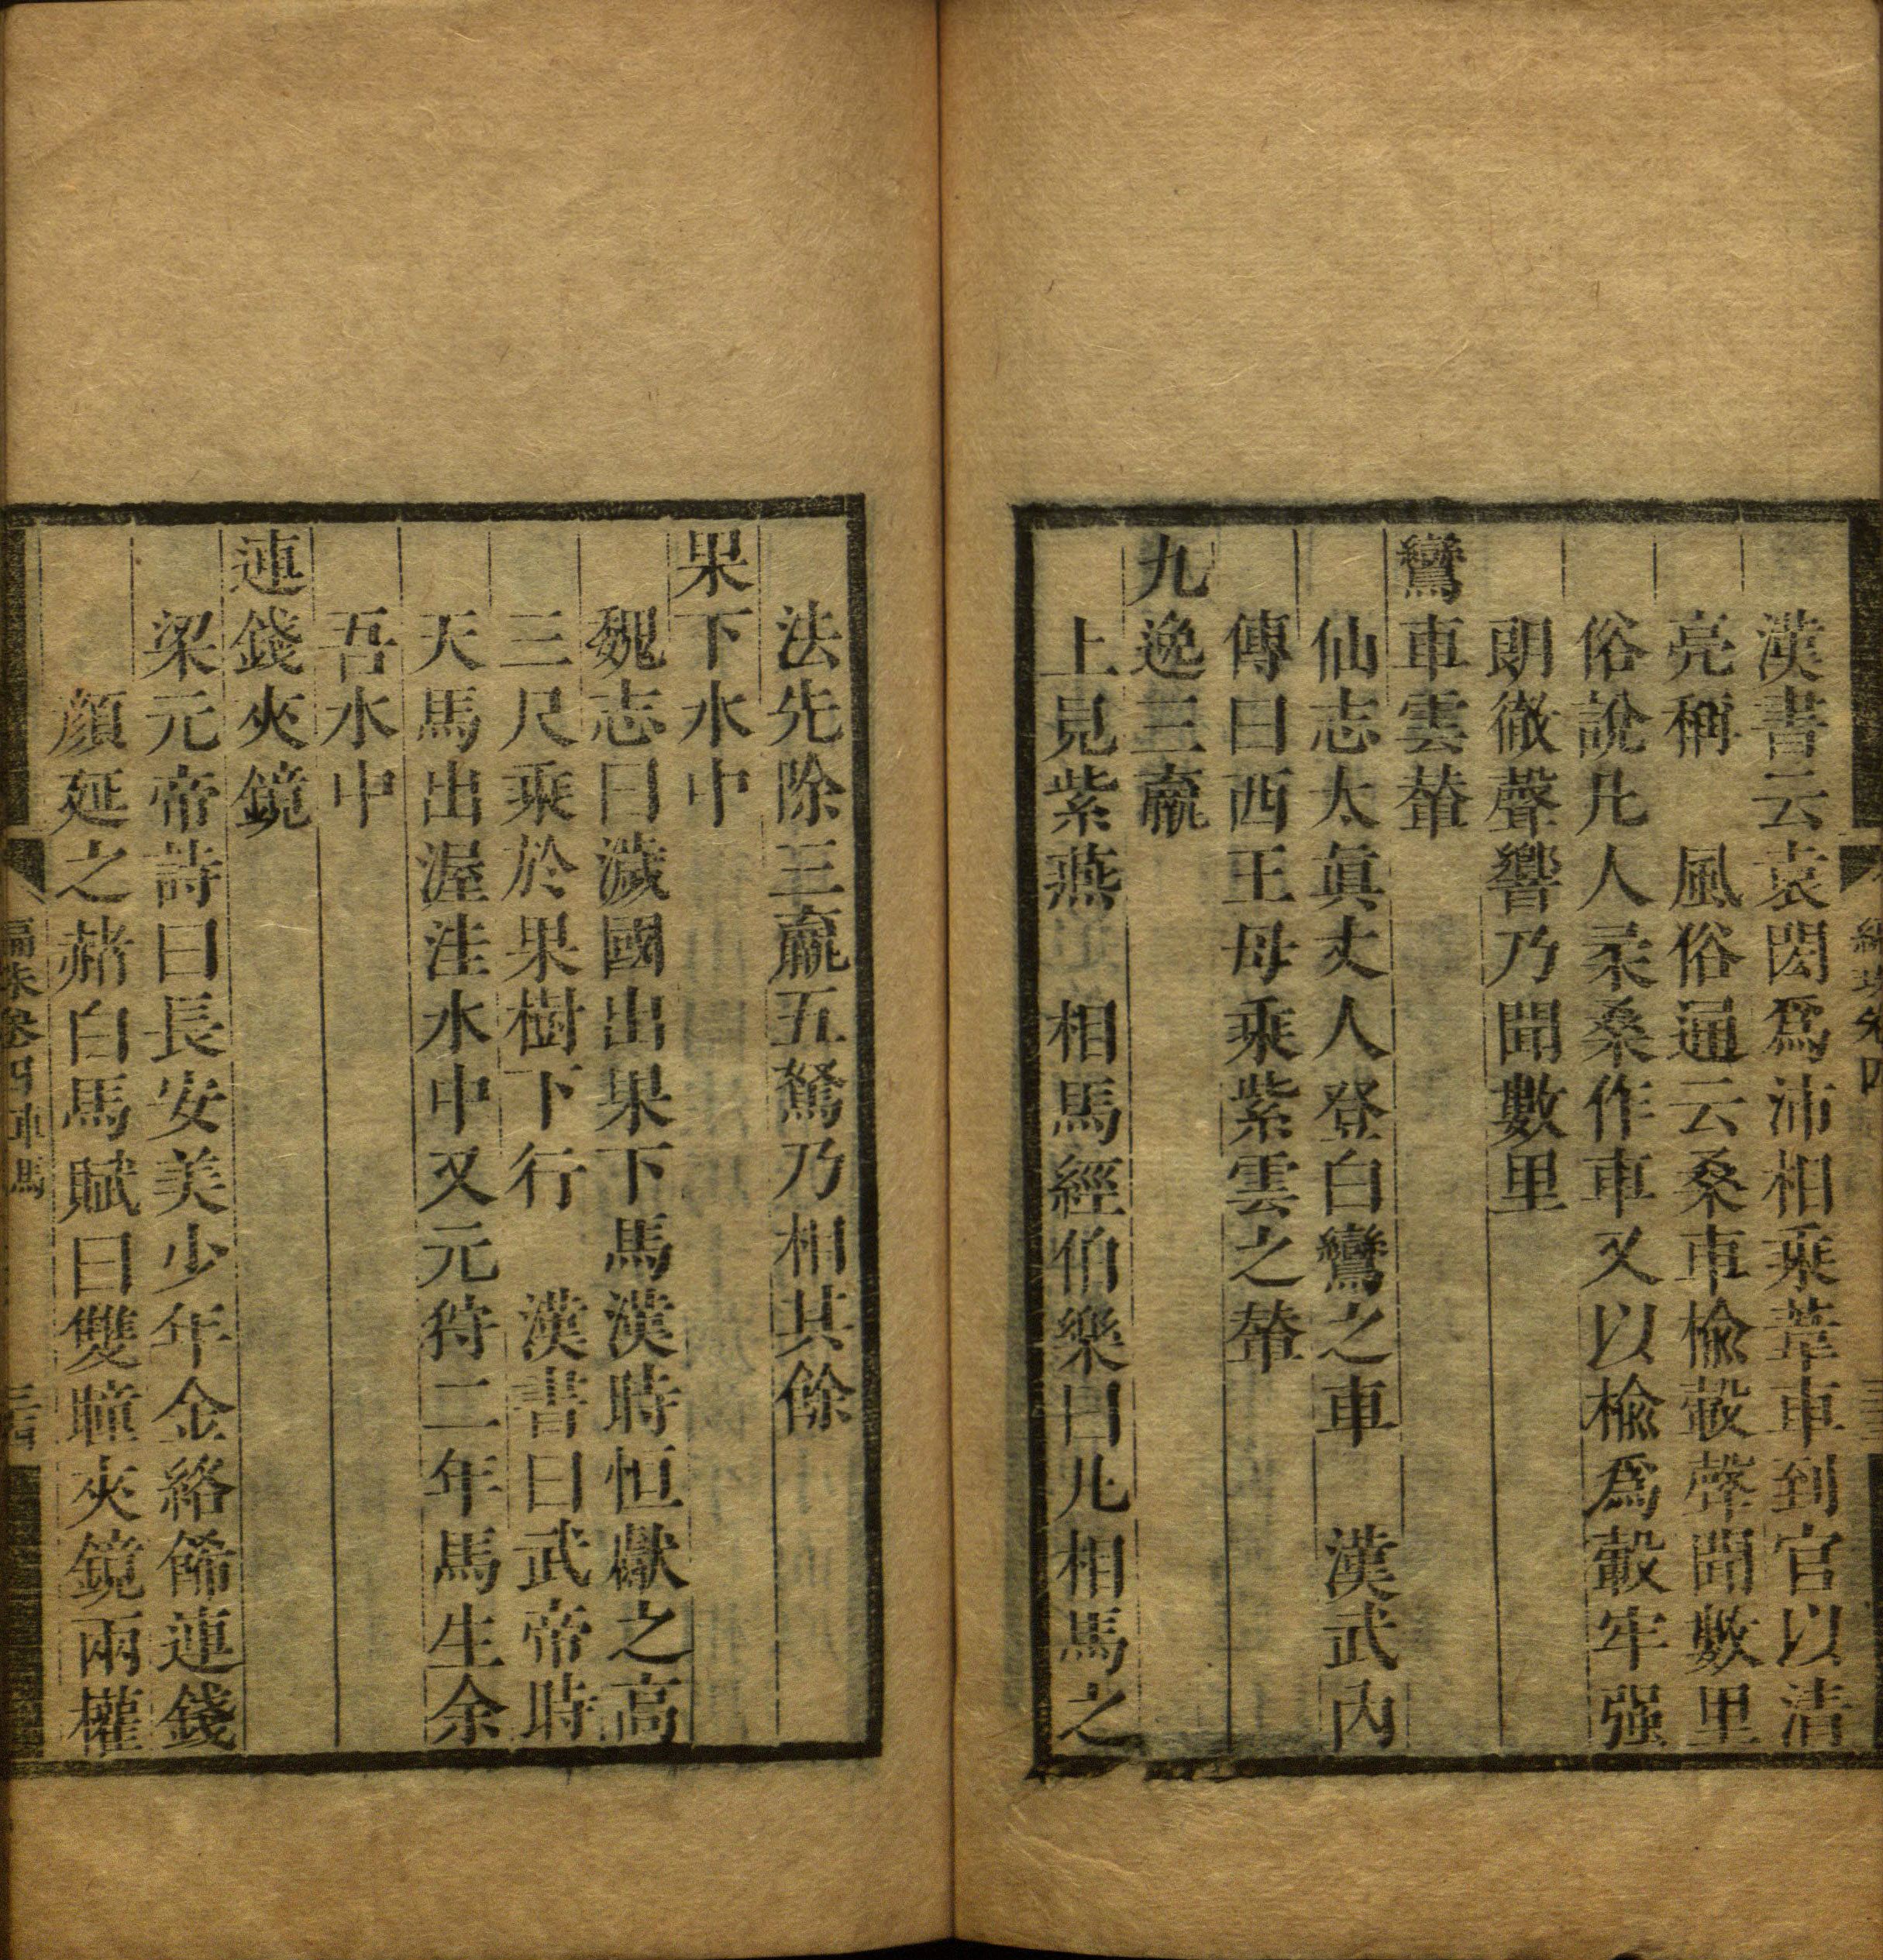 漢書云袁閎爲沛相乘葦車到官以清
亮稱　風俗通云桑車榆轂聲聞數里
俗說凡人柔桑作車又以榆爲轂牢强
朗徹聲響乃聞數里
鸞車雲輦
仙志太眞丈人登白鸞之車　漢武内
傳曰西王母乘紫雲之輦
九逸三羸
上見紫燕　相馬經伯樂曰凡相馬之
法先除三羸五駑乃相其餘
果下水中
魏志曰濊國出果下馬漢時恒獻之高
三尺乘於果樹下行　漢書曰武帝時
天馬出渥洼水中又元狩二年馬生余
吾水中
連錢夾鏡
梁元帝詩曰長安美少年金絡飾連錢
顔延之赭白馬賦曰雙瞳夾鏡兩權
編珠卷四車馬